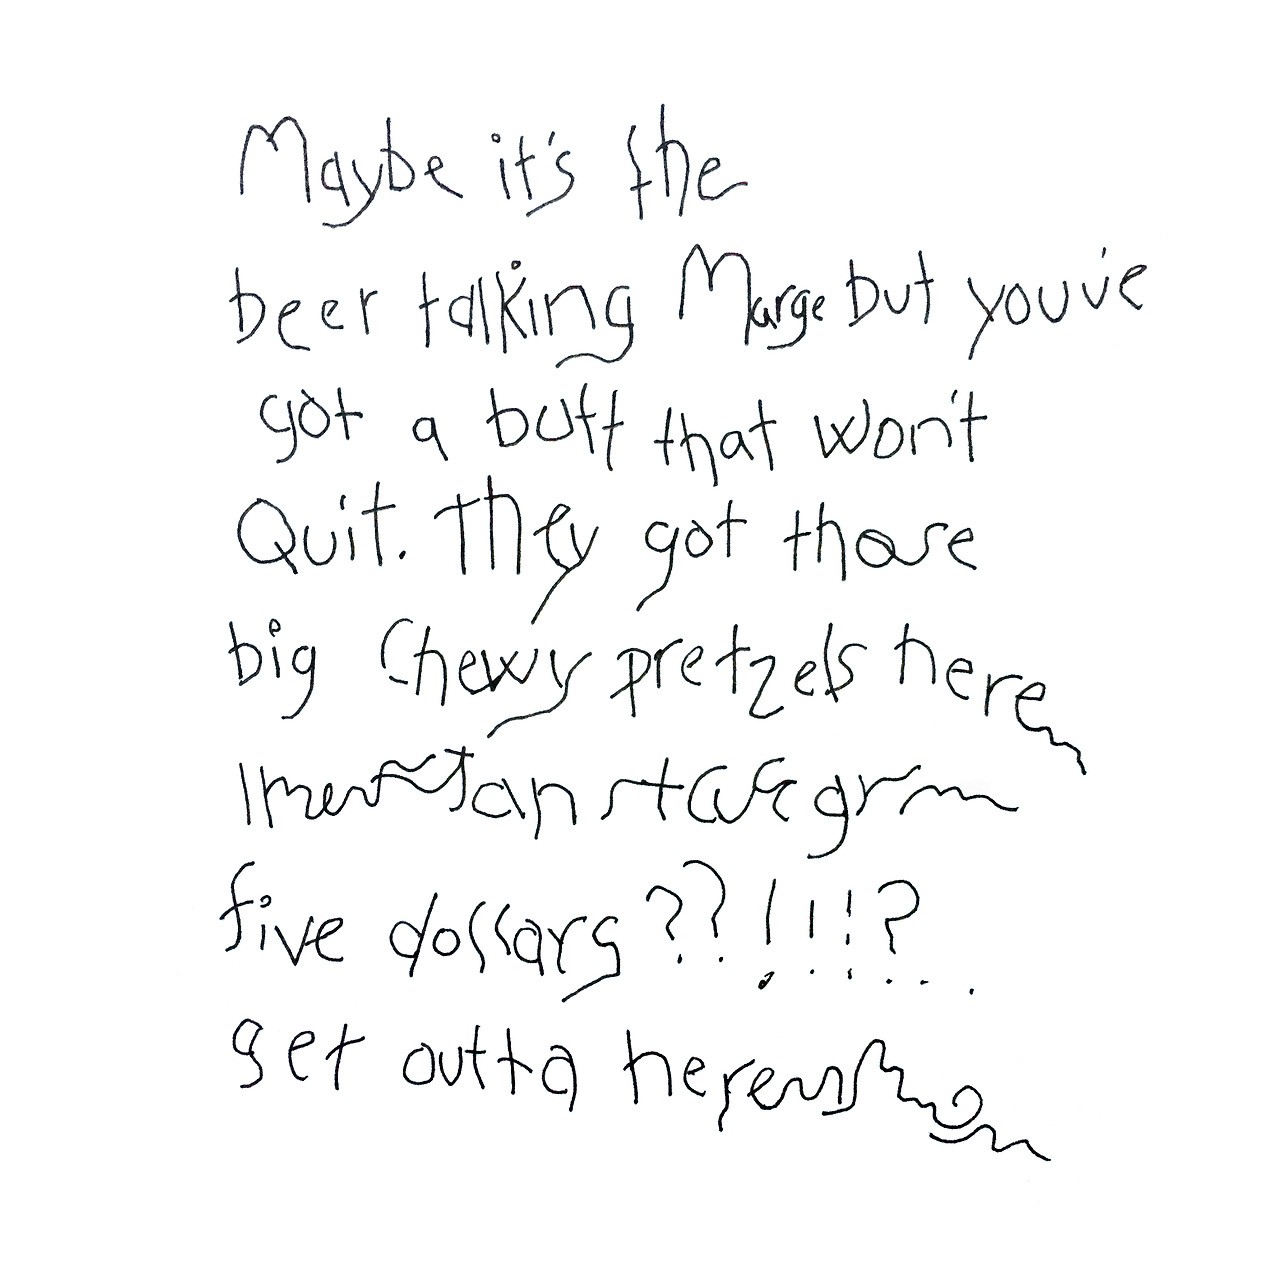 Maybe it's the
beer talking Marge but youv'e
got a butt that won't
Quit. They got those
big Chewy pretzels here
five dollars ??!!!?...
get outta here